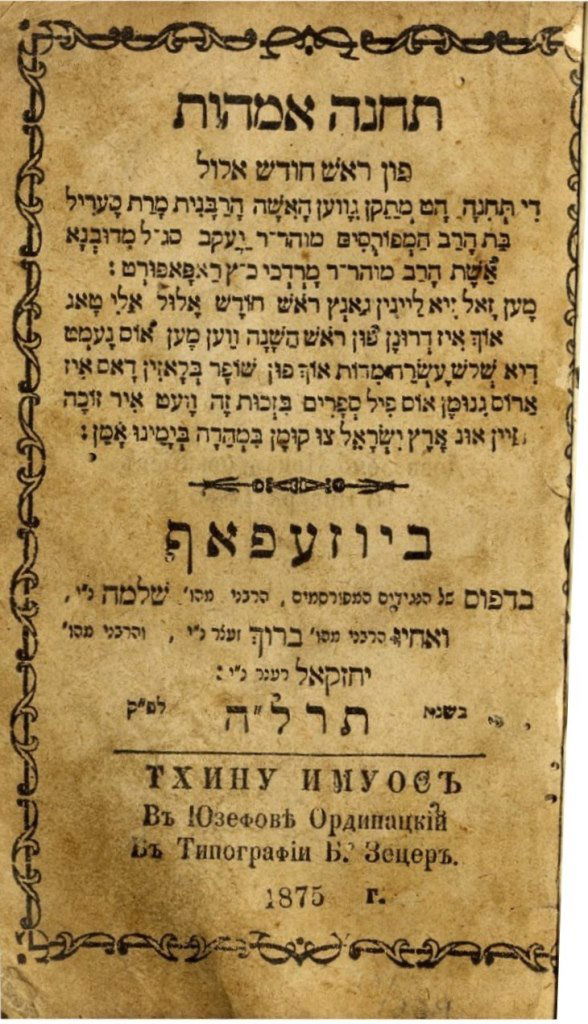 תחנה אמהות
פון ראש חודש אלול
די תְּחִנָה הָט מְתַקֵן גֶווען הָאִשָׁה הָרַבָּנִית מָרַת סֶערִיל
בַּת הָרַב הַמְפוּרְסָם מוהר״ר יַעֲקֹב סג״ל מִדוּבְנָא
אֵשֶׁת הָרַב מוהר״ר מָרְדְכַי כ״ץ רַאפָּאפּורְט :
מֶען זָאל זִיא לֵייגִין גַאנְץ רֹאשׁ חוֹדֶשׁ אֶלוּל אַלִי טָאג
אוֹךְ אִיז דְרוּנְן פוּן רֹאשׁ הַשָׁנָה וֶוען מֶען אוֹס נֶעמְט
דִיא שְׁלֹשׁ עֶשְׂרֵה מִדוֹת אוֹךְ פון שׁוֹפָר בְּלָאזִין דָאס אִיז
אַרוֹס גִנוּמֶן אוֹס פִיל סְפָרִים בִּזְכוּת זֶה וֶועט אִיר זוֹכֶה
זַיין אוּנ אֶרֶץ יִשְׂרָאֵל צוּ קוּמֶן בִּמְהֵרָה בְּיָמֵינוּ אָמֵן :
ביוזעפאף
בדפוס של הנגידים המפורסמים , הרבני מהו׳ שלמה נ״י ,
ואחיו הרבני מהו׳ ברוך זעצר נ״י , והרבני מהו׳
יחזקאל רענר נ״י :
בשנת תרל״ה לפ״ק
ТХИНУ ИМУОСЪ
Въ Юзефовѣ Ординацкій
Въ Типографіи Б. Зецеръ.
1875 г.